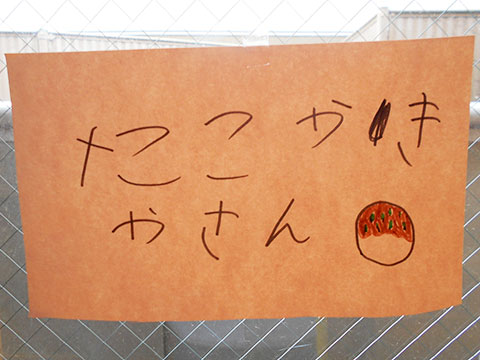 たこかき
やさん